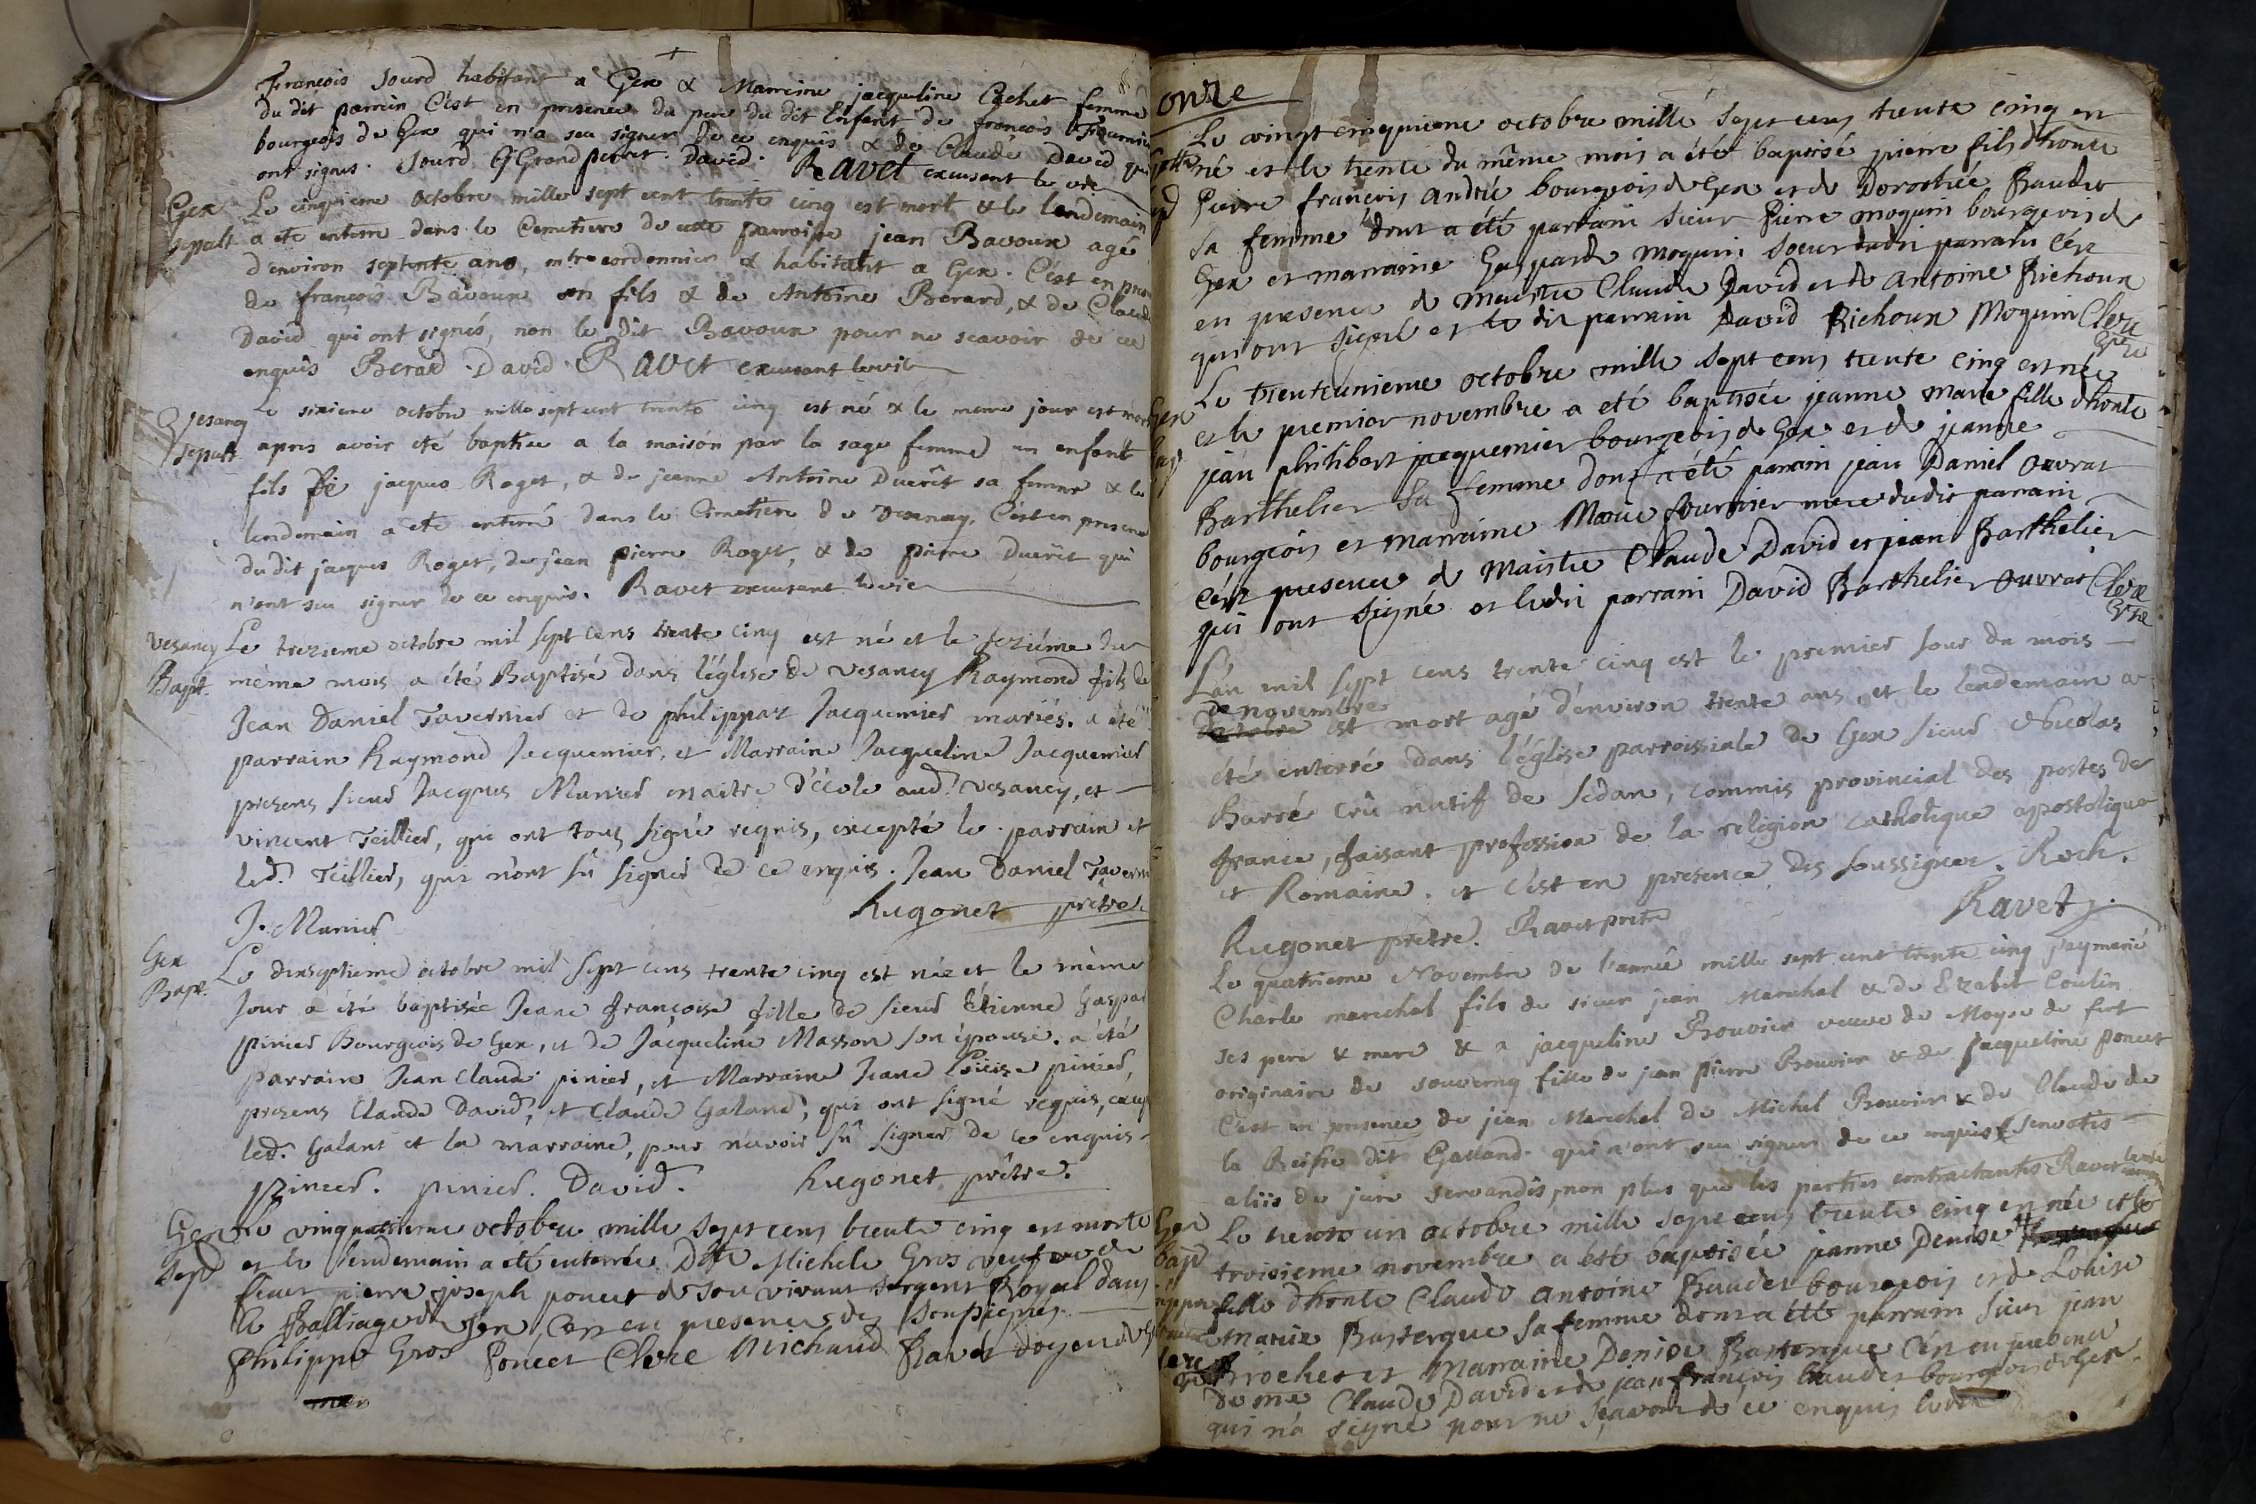 François Jourd habitant a Gex & Marreine jacqueline Cachet femme
du dit parrein C'est en presence du pere du dit Enfant de francois Fournier
bourgeois de Gex qui n'a sçu signer de ce enquis & de Claude David qui
ont signés. Jourd GGrandperret. David. Ravet excusant le vic
Gex Le cinquieme octobre mille sept cent trente cinq est mort & le lendemain
sepult a eté enterré dans le Cemetiere de cette parroisse jean Bavoux agé
d'environ septente ans, cordonnier & habitant a Gex. C'est en pres
de françois Bavoux son fils & de Antoine Berard, & de Claude
David qui ont signés, non le dit Bavoux pour ne scavoir de ce
enquis Berard David Ravet excusant levic
Vesancy Le sixieme octobre mille sept cent trente cinq est né & le meme jour est mort
sepult apres avoir eté baptisé a la maison par la sage femme un enfant
fils de jacques Roget, & de jeanne Antoine Duerit sa femme & le
lendemain a eté enterré dans le Cimetiere de Vesancy. C'est en presence
du dit jacques Roget, de jean pierre Roget, & de pierre Duerit qui
n'ont sçu signer de ce enquis. Ravet excusant le vic
Vesancy Le trezieme octobre mil sept cens trente cinq est né et le seziéme du
Bapt. même mois a été Baptisé dans l'église de Vesancy Raymond fils de
Jean Daniel Tavernier et de philippaz Jacquemier mariés. a été
parrain Raymond Jacquemier, et Marraine Jacqueline Jacquemier
presens sieur Jacques Munier maitre d'école aud. Vesancy, et
vincent Teillier, qui ont tous signé requis, excepté le parrain et
led. Teillier, qui n'ont sû signer de ce enquis. Jean Daniel Taverni
J. Munier Hugonet prêtre
Gex Le dixseptieme octobre mil sept cens trente cinq est née et le même
Bapt. jour a été baptisée Jeane françoise fille de sieur Etienne Gaspar
pinier Bourgeois de Gex, et de Jacqueline Masson son épouse. a été
parrain Jean Claude pinier, et Marraine Jeane Loüise pinier,
presens Claude David, et Claude Galand, qui ont signé requis, excep
led. Galant et la marraine, pour n'avoir sû signer de ce enquis
pinier. pinier. David. Hugonet prêtre.
Gex Le vingquatrieme octobre mille sept cens trente cinq est morte
sepd et le lendemain a eté enterrée Dlle Michele Gros veufve de
sieur pierre joseph poncet de son vivant sergent Royal dans
le Balliage de Gex, C'est en presence des soussignes
Philippe Gros Poncet Clerc Michaud Ravet doyen de Gex
onze
Le vingt cinquieme octobre mille sept cens trente cinq est
né et le trente du même mois a été baptisé pierre fils d'honte
Pierre françois André bourgeois de Gex et de Dorothée Baudet
sa femme dont a été parrain sieur Pierre moquin bourgeois de
Gex et marraine Gasparde Moquin soeur dudit parrain C'est
en presence de maistre Claude David et de Antoine Richoux
qui ont signé et le dit parrain David Richoux Moquin Clerc
Gex
Le trenteunieme octobre mille sept cens trente cinq est née
et le premier novembre a eté baptisée jeanne marie fille d'honte
jean philibert jacquemier bourgeois de Gex et de jeanne
Barthelier sa femme dont a été parrain jean Daniel ouvrat
bourgeois et marraine Marie fournier mere dudit parrain
C'est presence de Maistre Claude David et jean Barthelier
qui ont signé et ledit parrain David Barthelier ouvrat Clerc
L'an mil sept cens trente cinq est le premier jour du mois
de novembre
est mort agé d'environ trente ans, et le lendemain a
été enterré dans l'église parroissiale de Gex sieur Nicolas
Barré crû natif de Sedan, commis provincial des postes de
france, faisant profession de la religion catholique apostolique
et Romaine. et c'est en presence des soussignez. Roch.
Hugonet prêtre. Ravet prete Ravet
Le quatrieme Novembre de l'année mille sept cent trente cinq jay marié
Charle marechal fils de sieur jean Marechal & de Elzabet Coulin
ses pere & mere & a jacqueline Bouvier veuve de Moyse de fert
originaire de souverny fille de jean pierre Bouvier & de Jacqueline poncet
C'est en presence de jean Marechal de Michel Bouvier & de Claude de
la Reisse dit Galland qui n'ont sçu signer de ce enquis servatis
aliis de jure servandis, non plus que les parties contractantes Ravet
Gex Le trente un octobre mille sept cens trente cinq est née et le
bapt troisieme novembre a eté baptisée jeanne Denise
fille d'honte Claude Antoine Baudet bourgeois et de Loüise
marie Bastergue sa femme dont a été parrain sieur jean
Brochet et Marraine Denise Bastergue C'est en presence
de me Claude David et de jean françois baudet bourgeois de Gex
qui n'a signé pour ne sçavoir de ce enquis